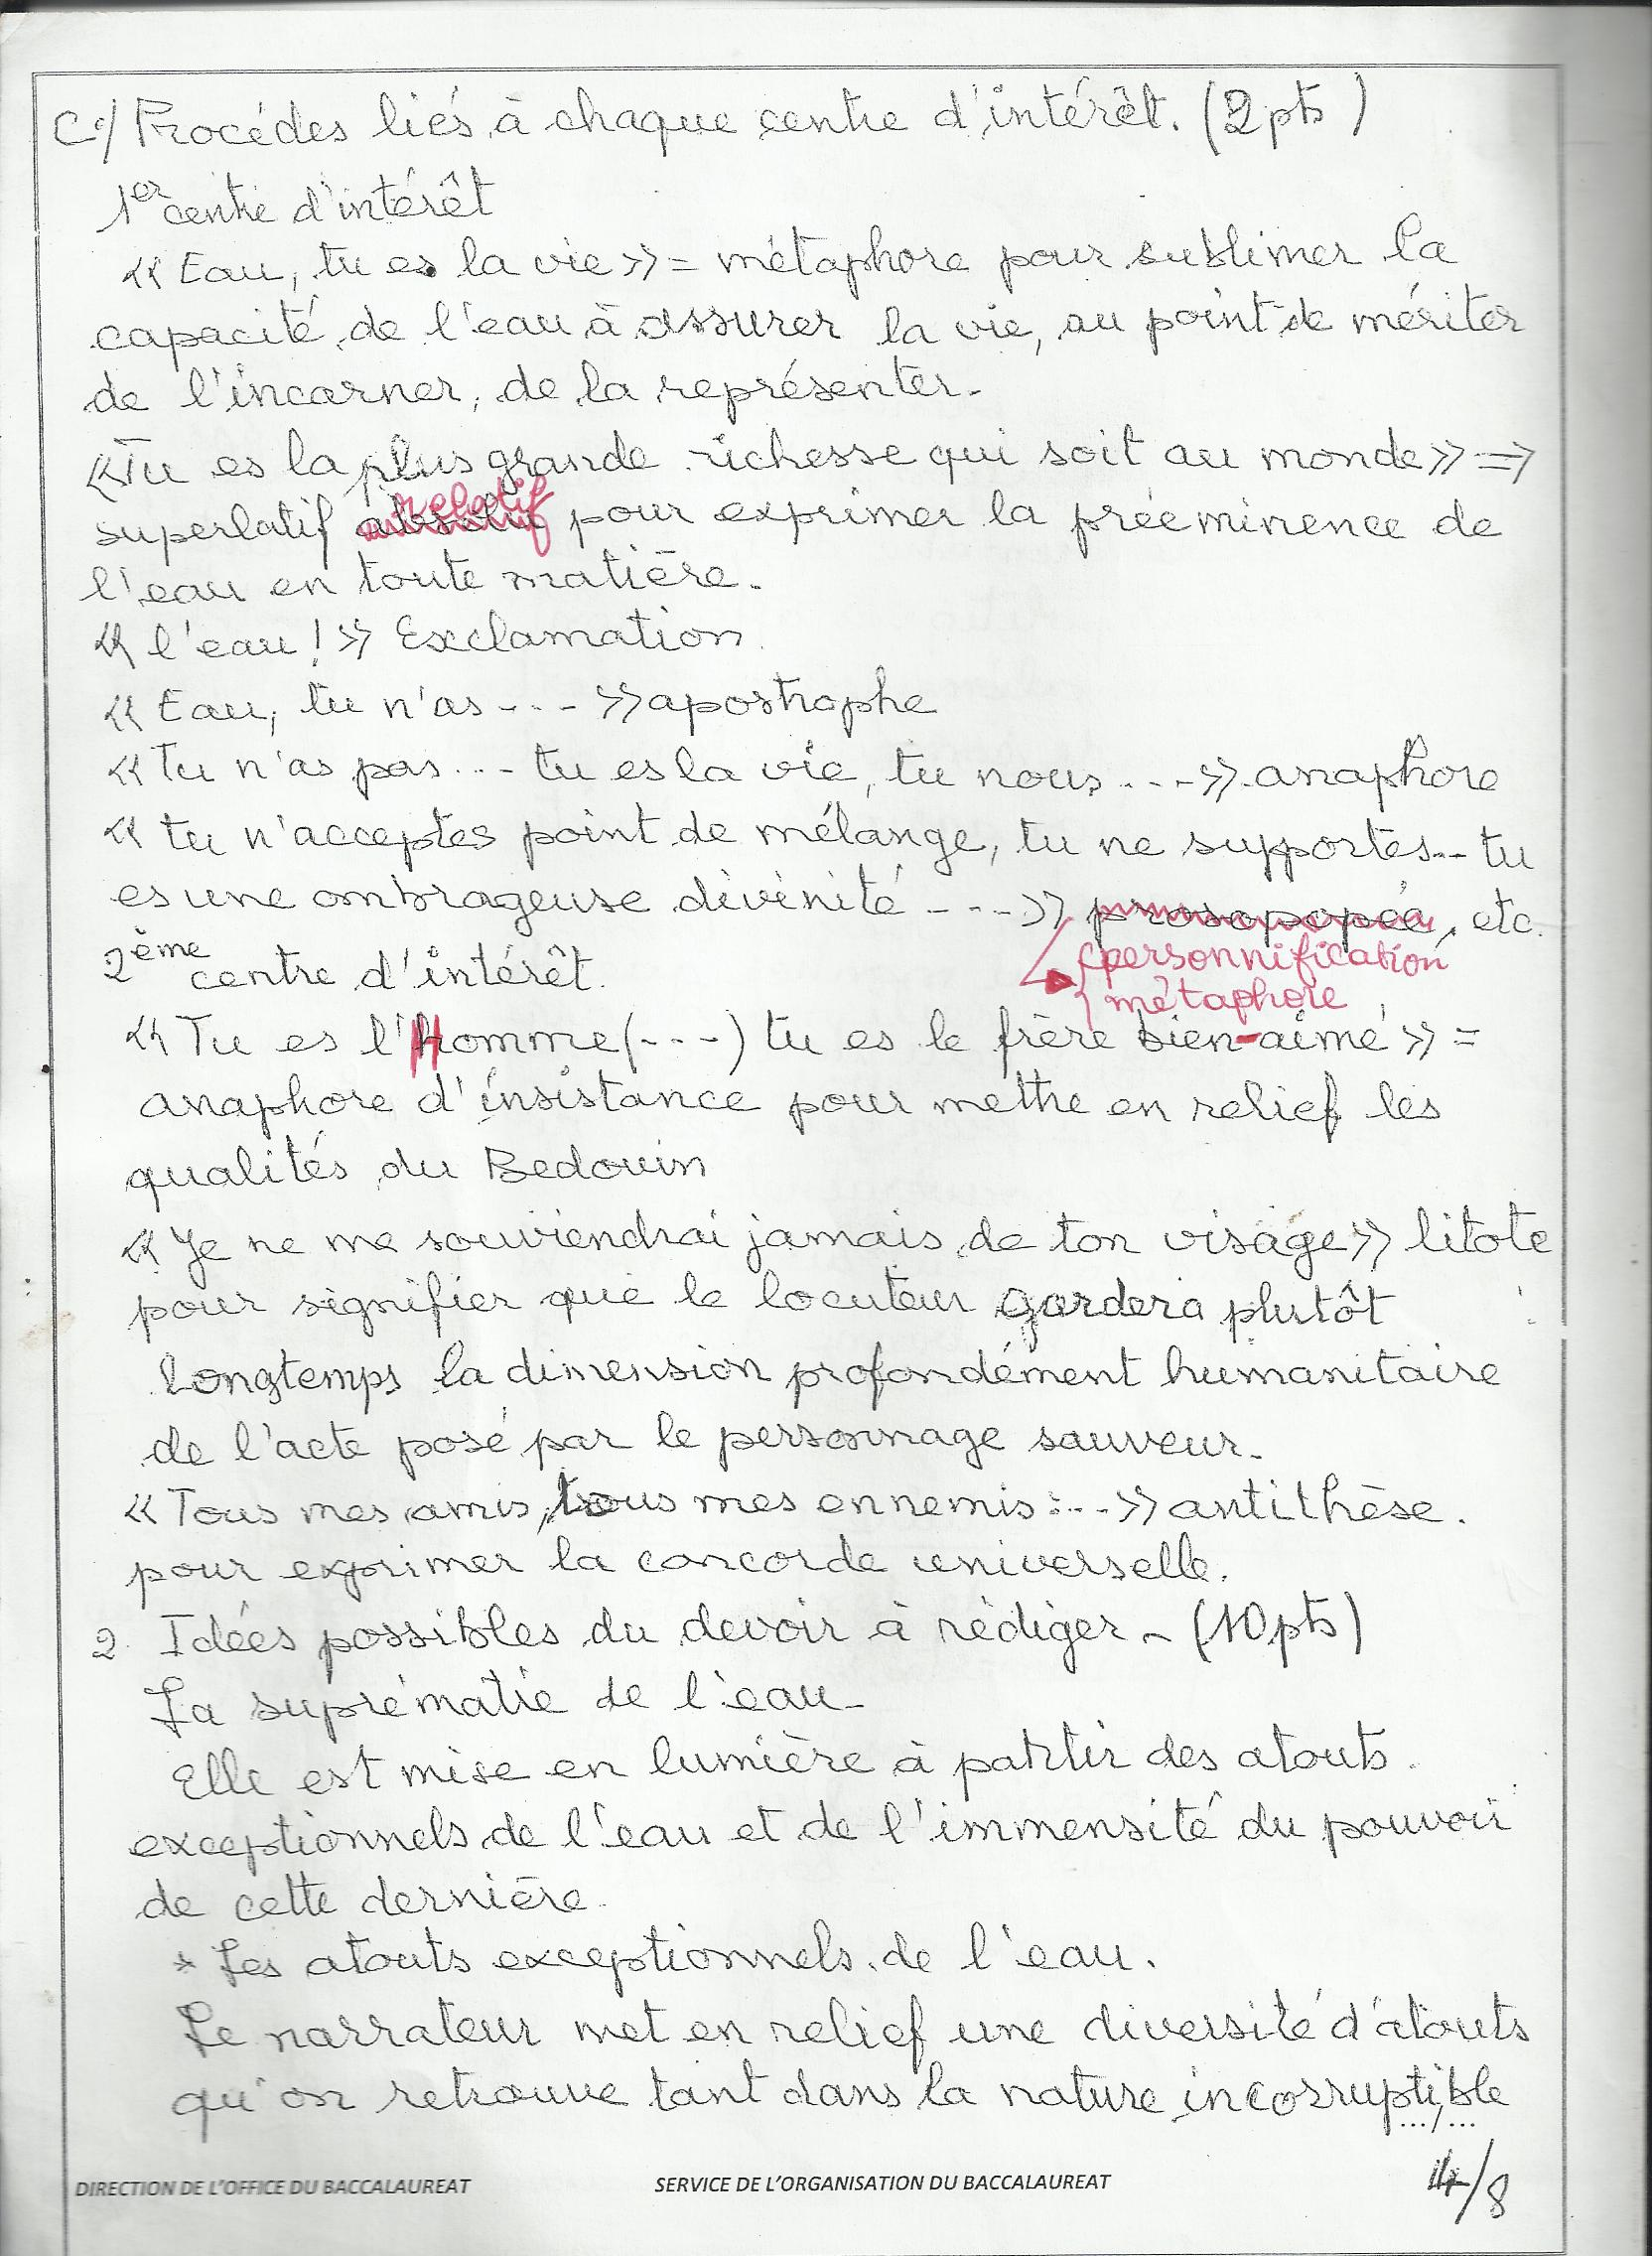 C°/ Procédés liés à chaque centre d'intérêt. (2pts)
1er centre d'intérêt
« Eau, tu es la vie » = métaphore pour sublimer la
capacité de l'eau à assurer la vie, au point de mériter
de l'incarner, de la représenter.
« Tu es la plus grande richesse qui soit au monde » =>
relatif
superlatif absolu pour exprimer la prééminence de
l'eau en toute matière.
« l'eau ! » Exclamation
« Eau, tu n'as --- » apostrophe
« Tu n'as pas --- tu es la vie, tu nous --- » anaphore
« tu n'acceptes point de mélange, tu ne supportes -- tu
es une ombrageuse divinité ---- » prosopopée, etc.
personnification
métaphore
2ème centre d'intérêt.
« Tu es l'Homme (---) tu es le frère bien-aimé » =
anaphore d'insistance pour mettre en relief les
qualités du Bedouin
« Je ne me souviendrai jamais de ton visage » litote
pour signifier que le locuteur gardera plutôt
longtemps la dimension profondément humanitaire
de l'acte posé par le personnage sauveur.
« Tous mes amis, tous mes ennemis --- » antithèse.
pour exprimer la concorde universelle.
2. Idées possibles du devoir à rédiger - (10pts)
La suprématie de l'eau -
Elle est mise en lumière à partir des atouts
exceptionnels de l'eau et de l'immensité du pouvoir
de cette dernière.
* Les atouts exceptionnels de l'eau.
Le narrateur met en relief une diversité d'atouts
qu'on retrouve tant dans la nature incorruptible
.../...
DIRECTION DE L'OFFICE DU BACCALAUREAT SERVICE DE L'ORGANISATION DU BACCALAUREAT 4/8